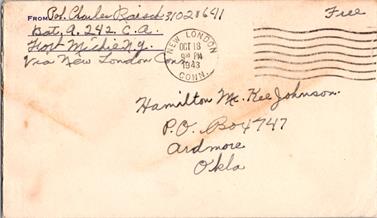 FROM Pvt. Charles Roesch 31028641
Bat. A. 242 C.A.
Fort Michie N.Y.
Via New London Conn.
Free
NEW LONDON
OCT 18
9 PM
1943
CONN.
Hamilton Mc. Kee Johnson.
P.O. Box 4747
Ardmore
Okla